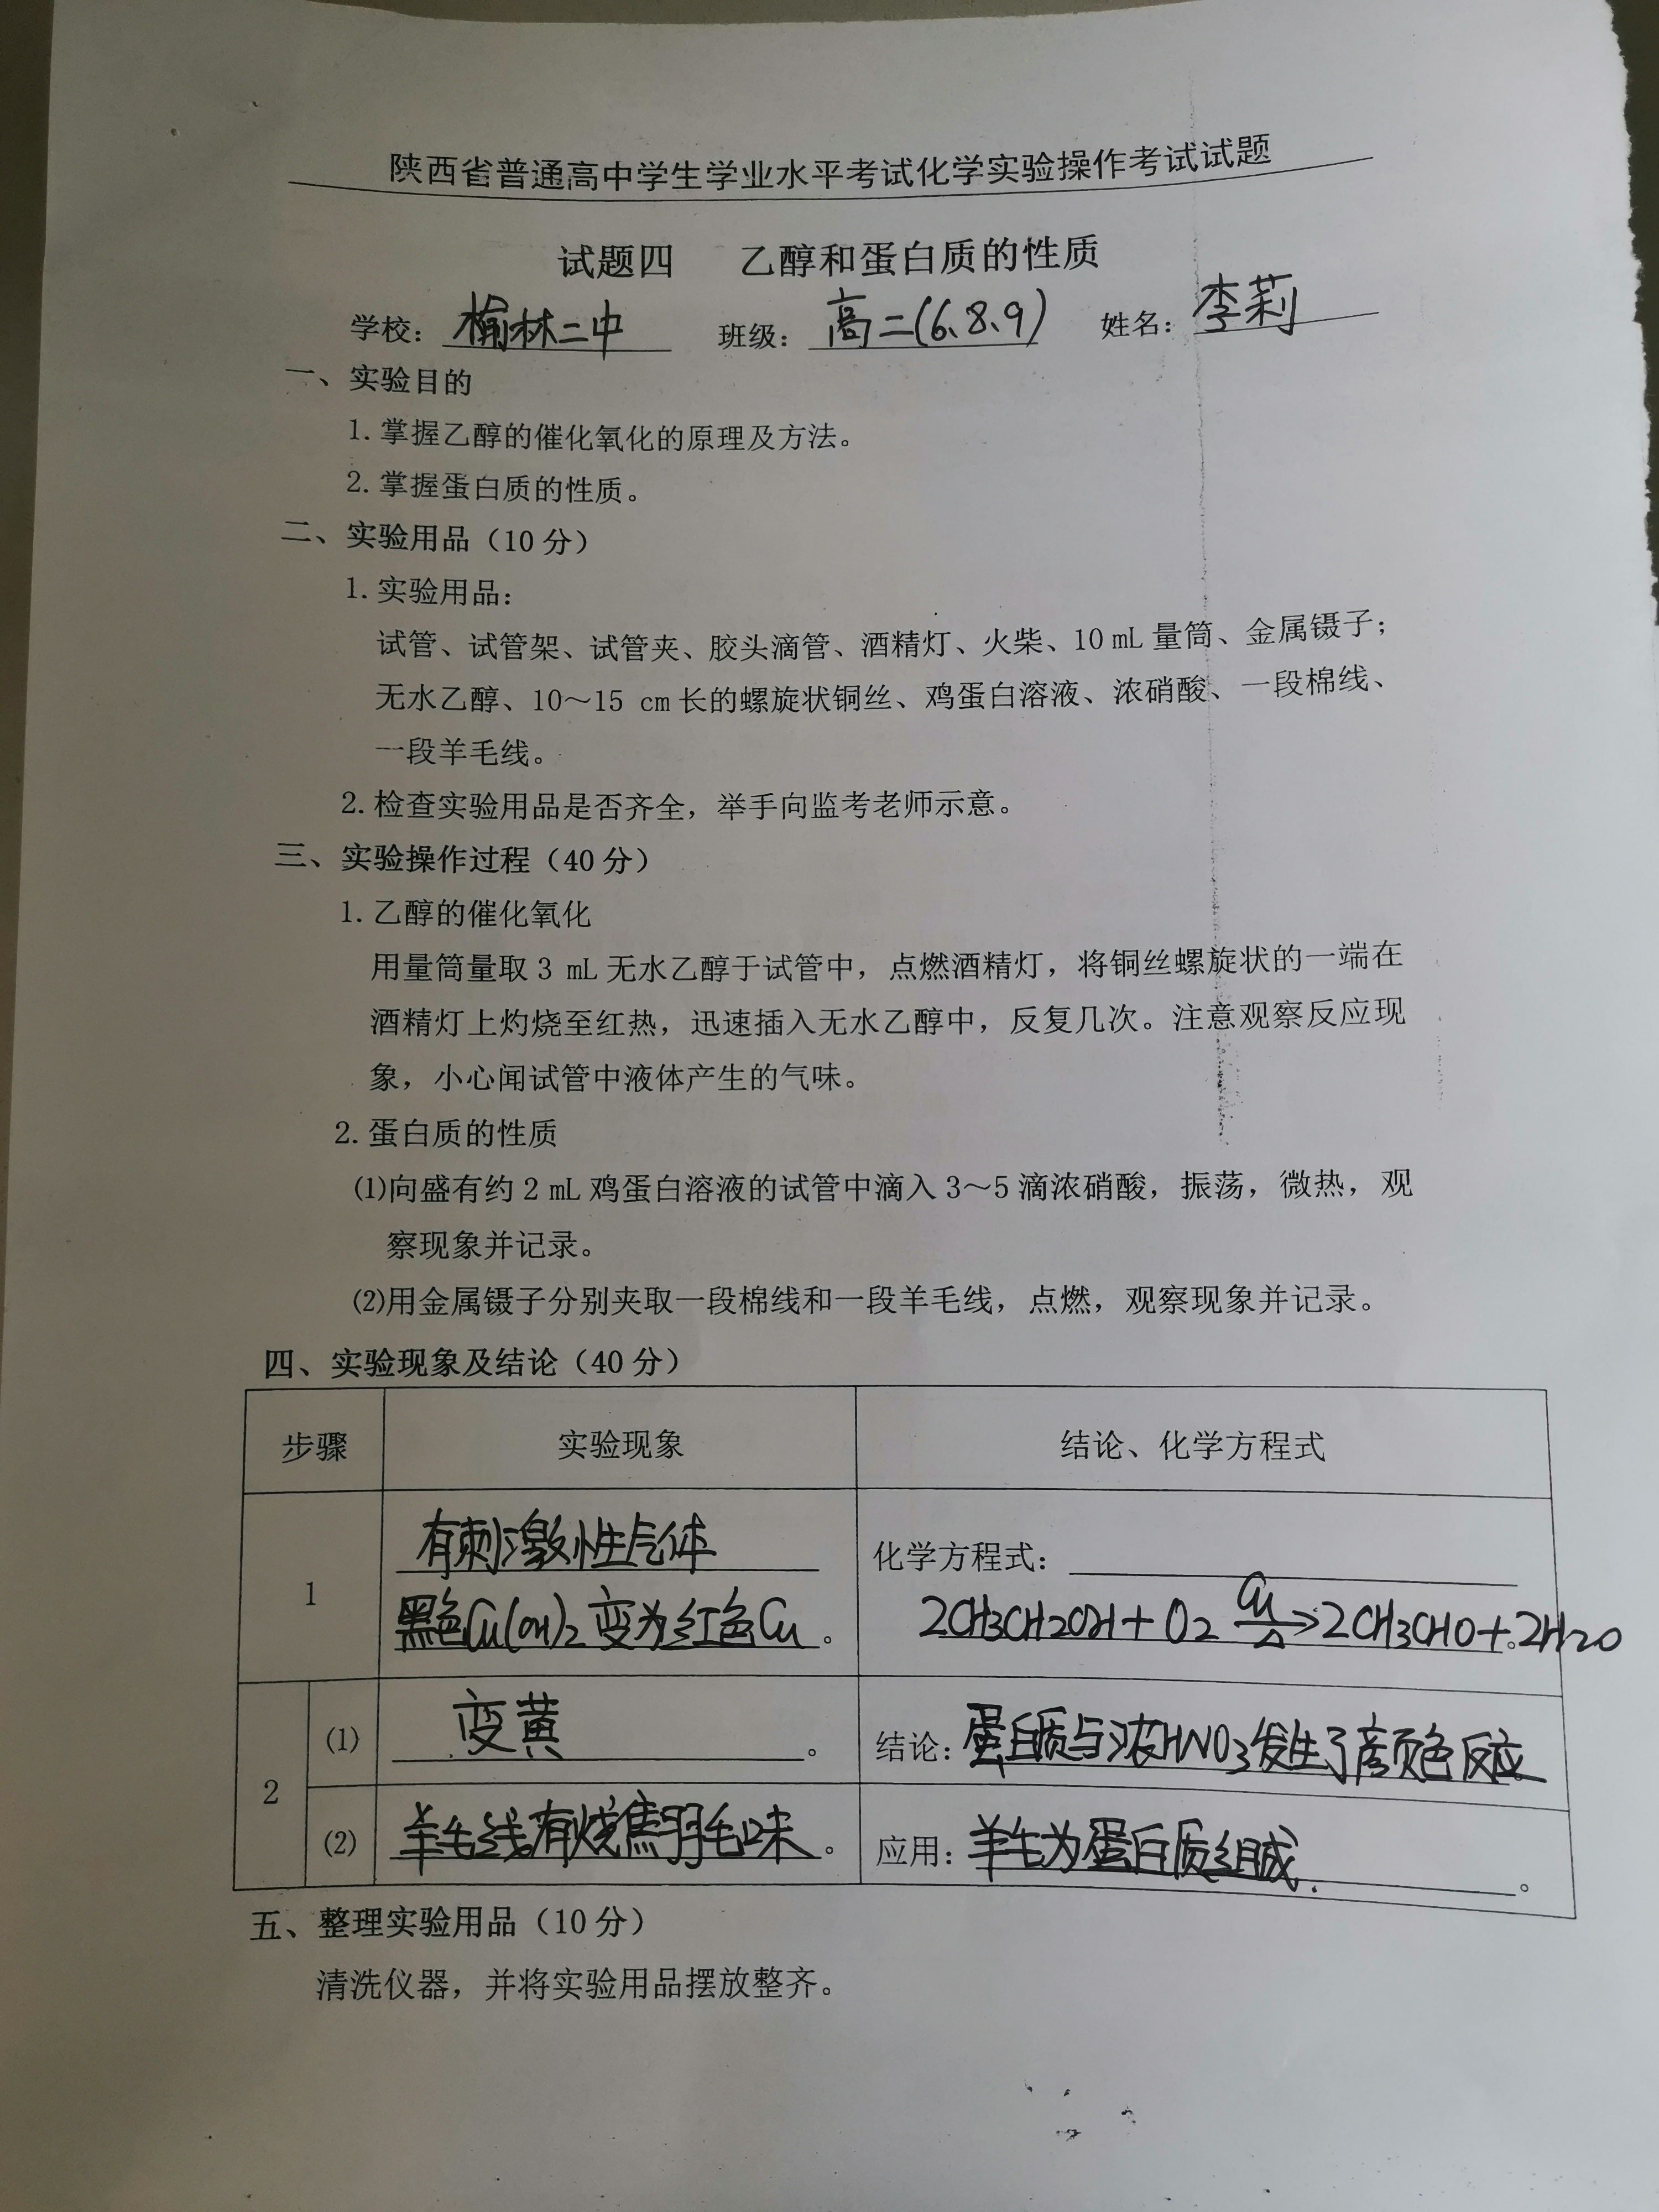 陕西省普通高中学生学业水平考试化学实验操作考试试题
试题四 乙醇和蛋白质的性质
学校: 榆林二中 班级: 高二(6、8、9) 姓名: 李莉
一、实验目的
1. 掌握乙醇的催化氧化的原理及方法。
2. 掌握蛋白质的性质。
二、实验用品（10 分）
1. 实验用品:
试管、试管架、试管夹、胶头滴管、酒精灯、火柴、10 mL 量筒、金属镊子;
无水乙醇、10～15 cm 长的螺旋状铜丝、鸡蛋白溶液、浓硝酸、一段棉线、
一段羊毛线。
2. 检查实验用品是否齐全，举手向监考老师示意。
三、实验操作过程（40 分）
1. 乙醇的催化氧化
用量筒量取 3 mL 无水乙醇于试管中，点燃酒精灯，将铜丝螺旋状的一端在
酒精灯上灼烧至红热，迅速插入无水乙醇中，反复几次。注意观察反应现
象，小心闻试管中液体产生的气味。
2. 蛋白质的性质
⑴向盛有约 2 mL 鸡蛋白溶液的试管中滴入 3～5 滴浓硝酸，振荡，微热，观
察现象并记录。
⑵用金属镊子分别夹取一段棉线和一段羊毛线，点燃，观察现象并记录。
四、实验现象及结论（40 分）
步骤 实验现象 结论、化学方程式
1
有刺激性气体
黑色Cu(OH)2 变为红色Cu 。
化学方程式:
2CH3CH2OH + O2 Cu △ → 2CH3CHO + 2H2O 。
2
⑴ 变黄 。 结论: 蛋白质与浓HNO3发生了颜色反应
⑵ 羊毛线有烧焦羽毛味 。 应用: 羊毛为蛋白质组成. 。
五、整理实验用品（10 分）
清洗仪器，并将实验用品摆放整齐。